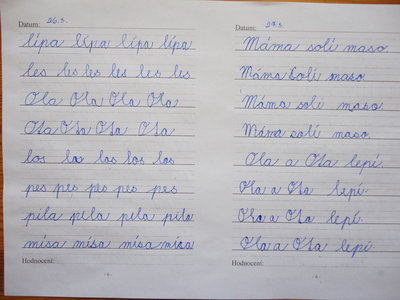 Datum: 26.3.
lípa lípa lípa lípa
les les les les les les
Ola Ola Ola Ola
Ota Ota Ota Ota
los los los los los
pes pes pes pes pes
pila pila pila pila
mísa mísa mísa mísa
Hodnocení:
Datum: 27.3.
Máma solí maso.
Máma solí maso.
Máma solí maso.
Máma solí maso.
Ola a Ota lepí.
Ola a Ota lepí.
Ola a Ota lepí.
Ola a Ota lepí.
Hodnocení: